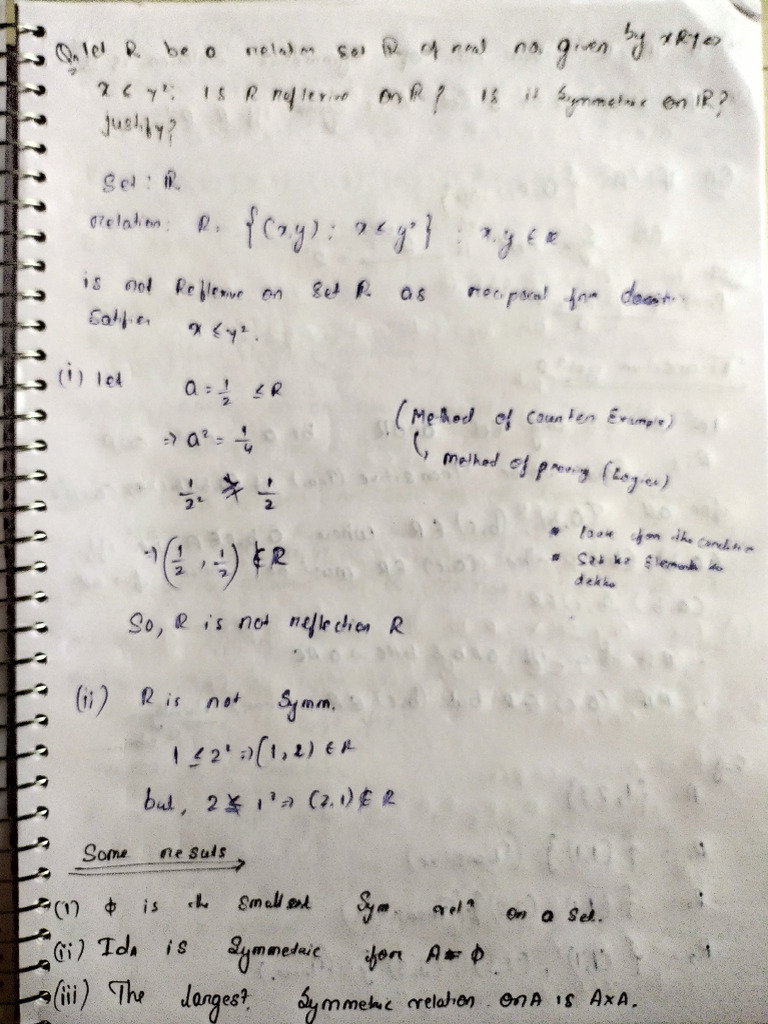 Q. let R be a relation set R of real no. given by xRy⇔
x ≤ y². Is R reflexive on R? Is it Symmetric on IR?
justify?
Set : R
relation: R = {(x,y) : x ≤ y²} : x, y ∈ R
is not Reflexive on Set R as reciprocal
Satifies x ≤ y².
(i) let a = 1/2 ≤ R
⇒ a² = 1/4
(Method of Counter Example)
↳ Method of proving (Logics)
1/2² 1/2
⇒ (1/2, 1/2) ∉ R
* look for the condition
* Set ke Elements ko
dekho
So, R is not reflection R
(ii) R is not Symm.
1 ≤ 2² ⇒ (1,2) ∈ R
but, 2 ≰ 1² ⇒ (2,1) ∉ R
Some resuts
(i) ϕ is the Smallest Sym relⁿ on a Set.
(ii) IdA is Symmetric for A ϕ
(iii) The larges?. Symmetric relation on A is A×A.